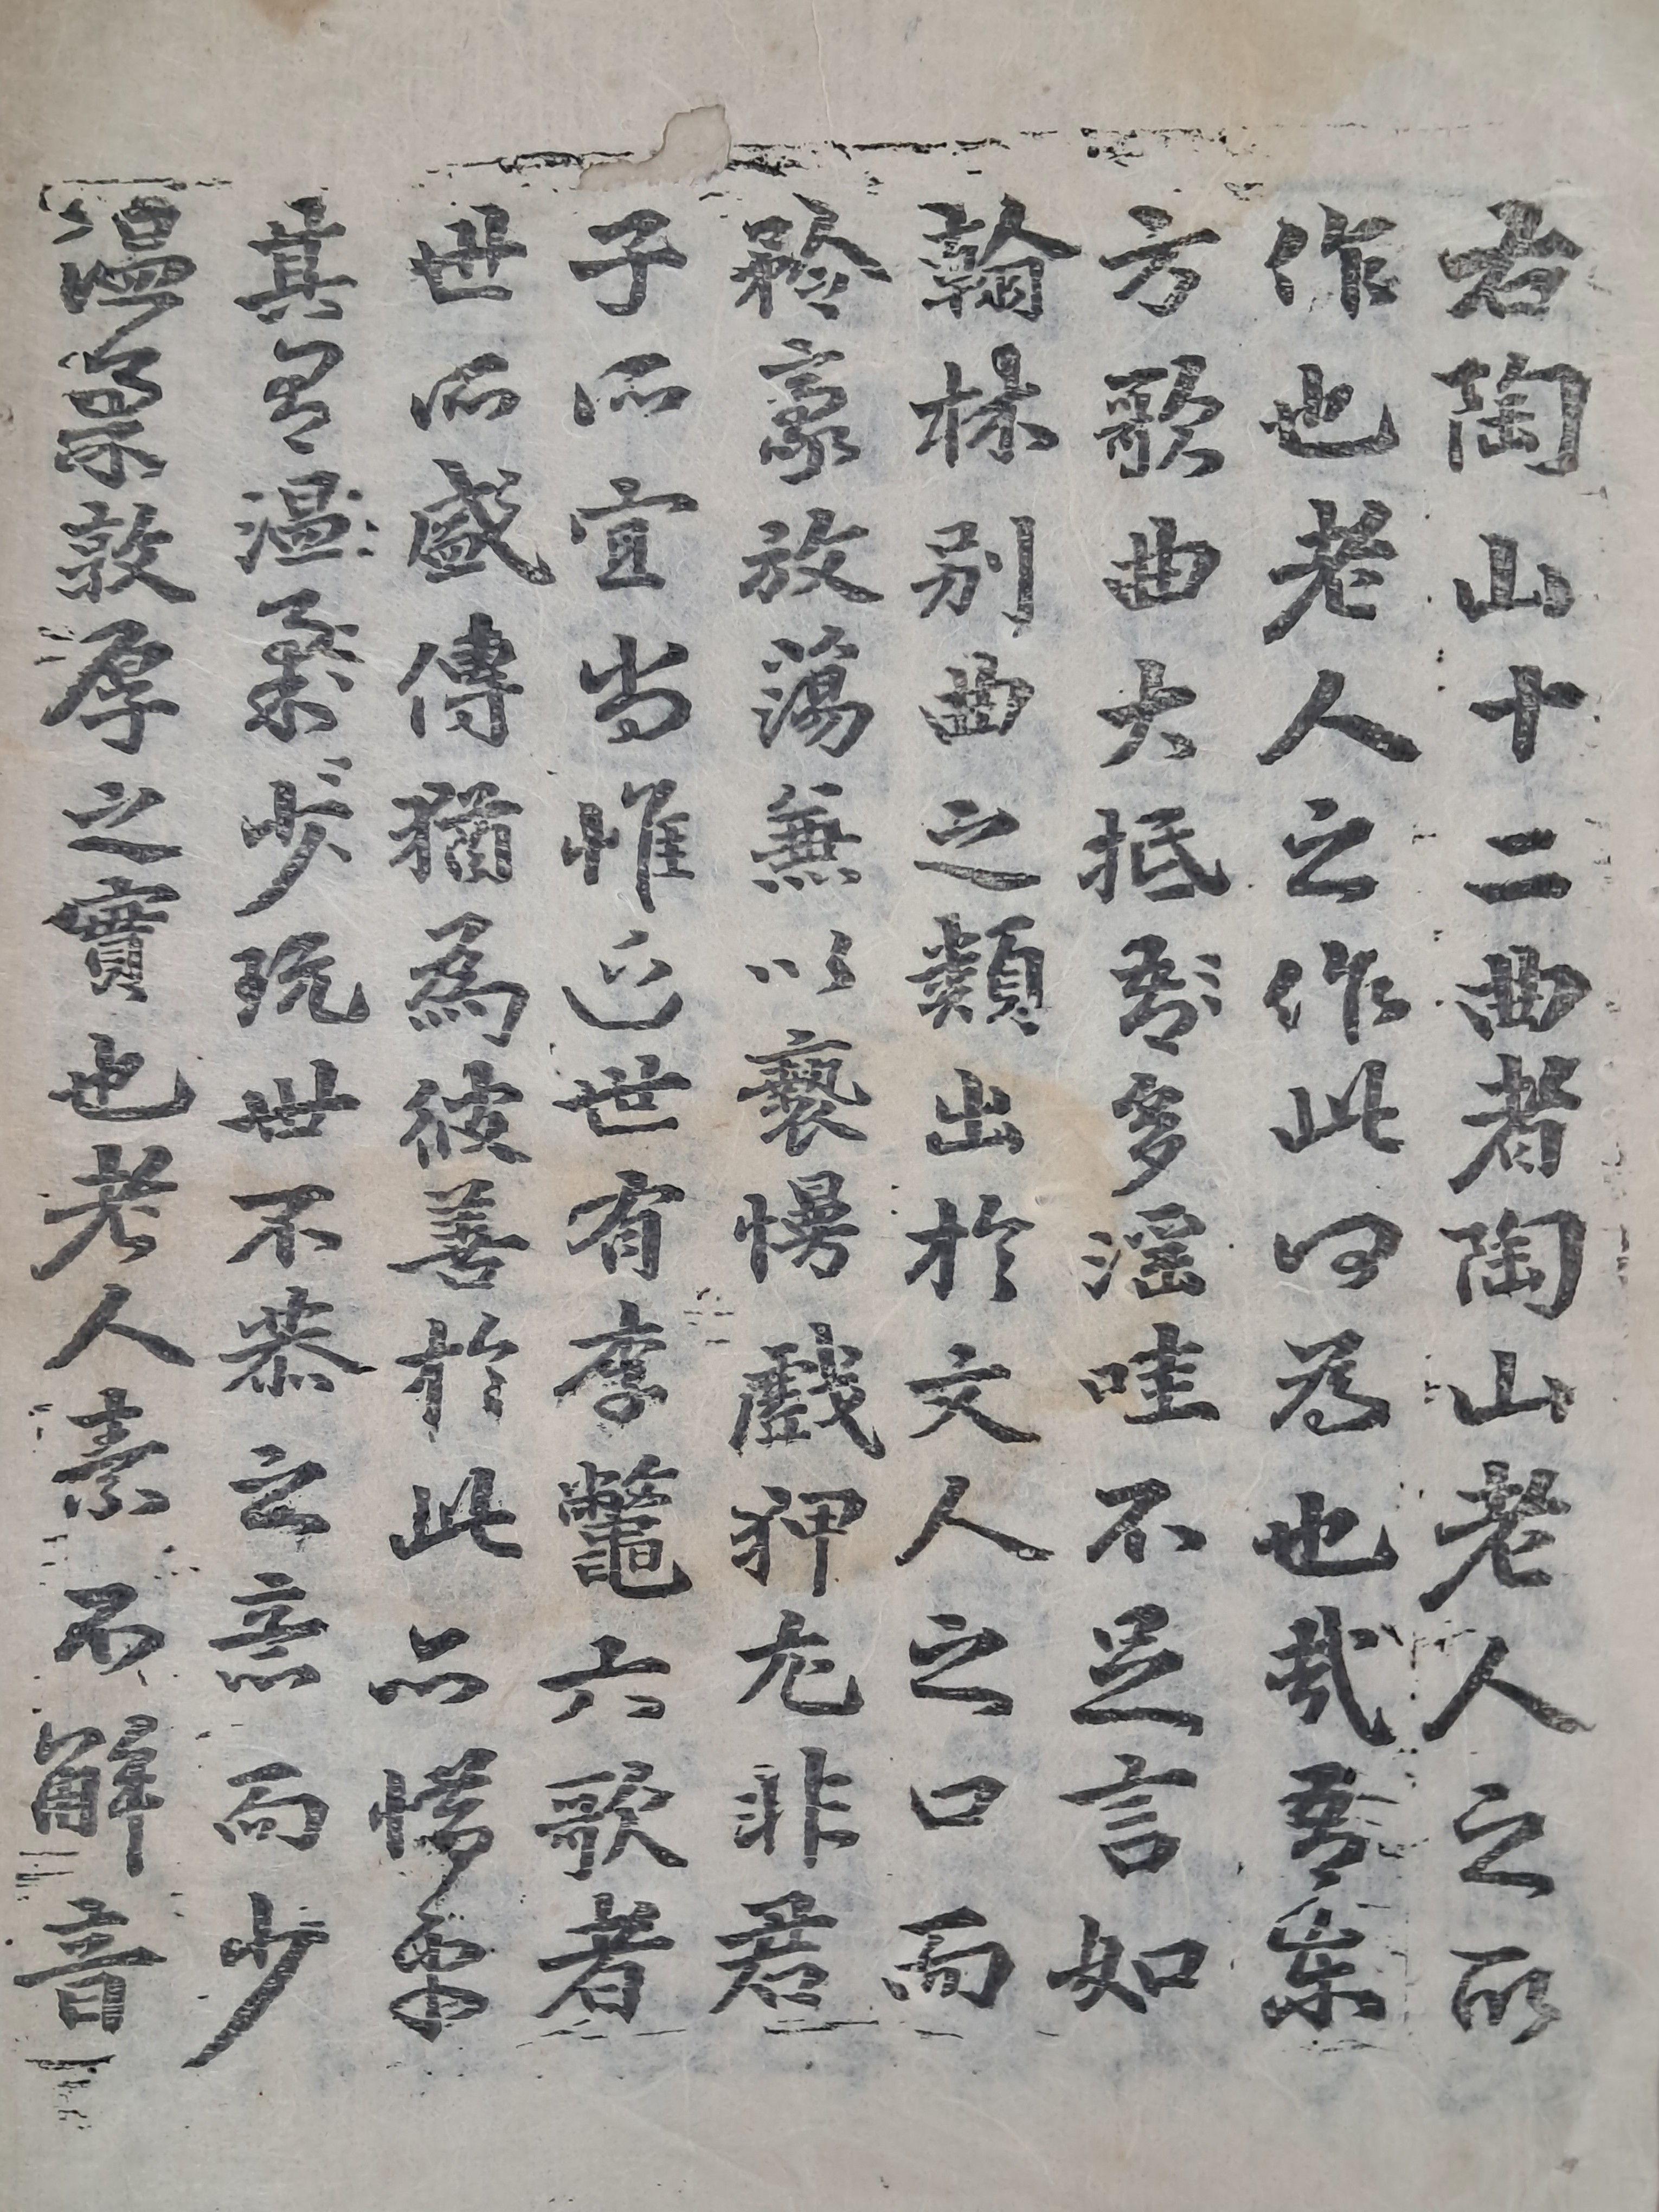 右陶山十二曲者陶山老人之所
作也老人之作此何為也哉吾東
方歌曲大抵吾多淫哇不足言如
翰林別曲之類出於文人之口而
矜豪放蕩兼以褻慢戲狎尤非君
子所宜尚惟近世有李鼈六歌者
世所盛傳猶為彼善於此亦惜乎
其有溫柔少玩世不恭之意而少
溫柔敦厚之實也老人素不解音